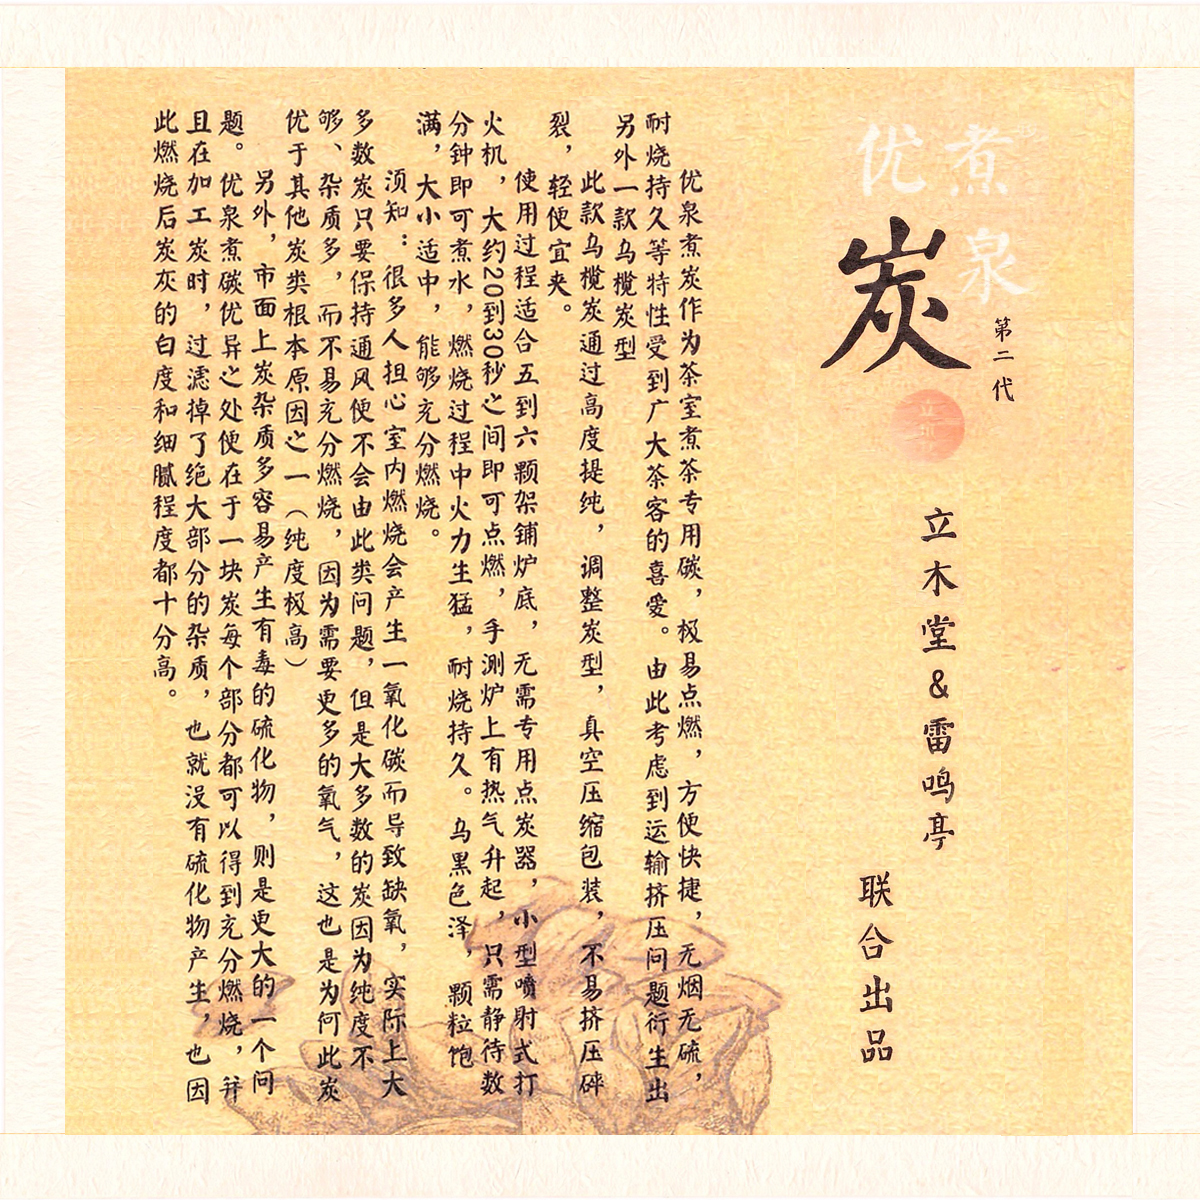 煮泉
优
炭
第二代
立木堂&雷鸣亭
联合出品
优泉煮炭作为茶室煮茶专用碳，极易点燃，方便快捷，无烟无硫，
耐烧持久等特性受到广大茶客的喜爱。由此考虑到运输挤压问题衍生出
另外一款乌榄炭型
此款乌榄炭通过高度提纯，调整炭型，真空压缩包装，不易挤压碎
裂，轻便宜夹。
使用过程适合五到六颗架铺炉底，无需专用点炭器，小型喷射式打
火机，大约20到30秒之间即可点燃，手测炉上有热气升起，只需静待数
分钟即可煮水，燃烧过程中火力生猛，耐烧持久。乌黑色泽，颗粒饱
满，大小适中，能够充分燃烧。
须知：很多人担心室内燃烧会产生一氧化碳而导致缺氧，实际上大
多数炭只要保持通风便不会由此类问题，但是大多数的炭因为纯度不
够、杂质多，而不易充分燃烧，因为需要更多的氧气，这也是为何此炭
优于其他炭类根本原因之一（纯度极高）
另外，市面上炭杂质多容易产生有毒的硫化物，则是更大的一个问
题。优泉煮碳优异之处便在于一块炭每个部分都可以得到充分燃烧，并
且在加工炭时，过滤掉了绝大部分的杂质，也就没有硫化物产生，也因
此燃烧后炭灰的白度和细腻程度都十分高。